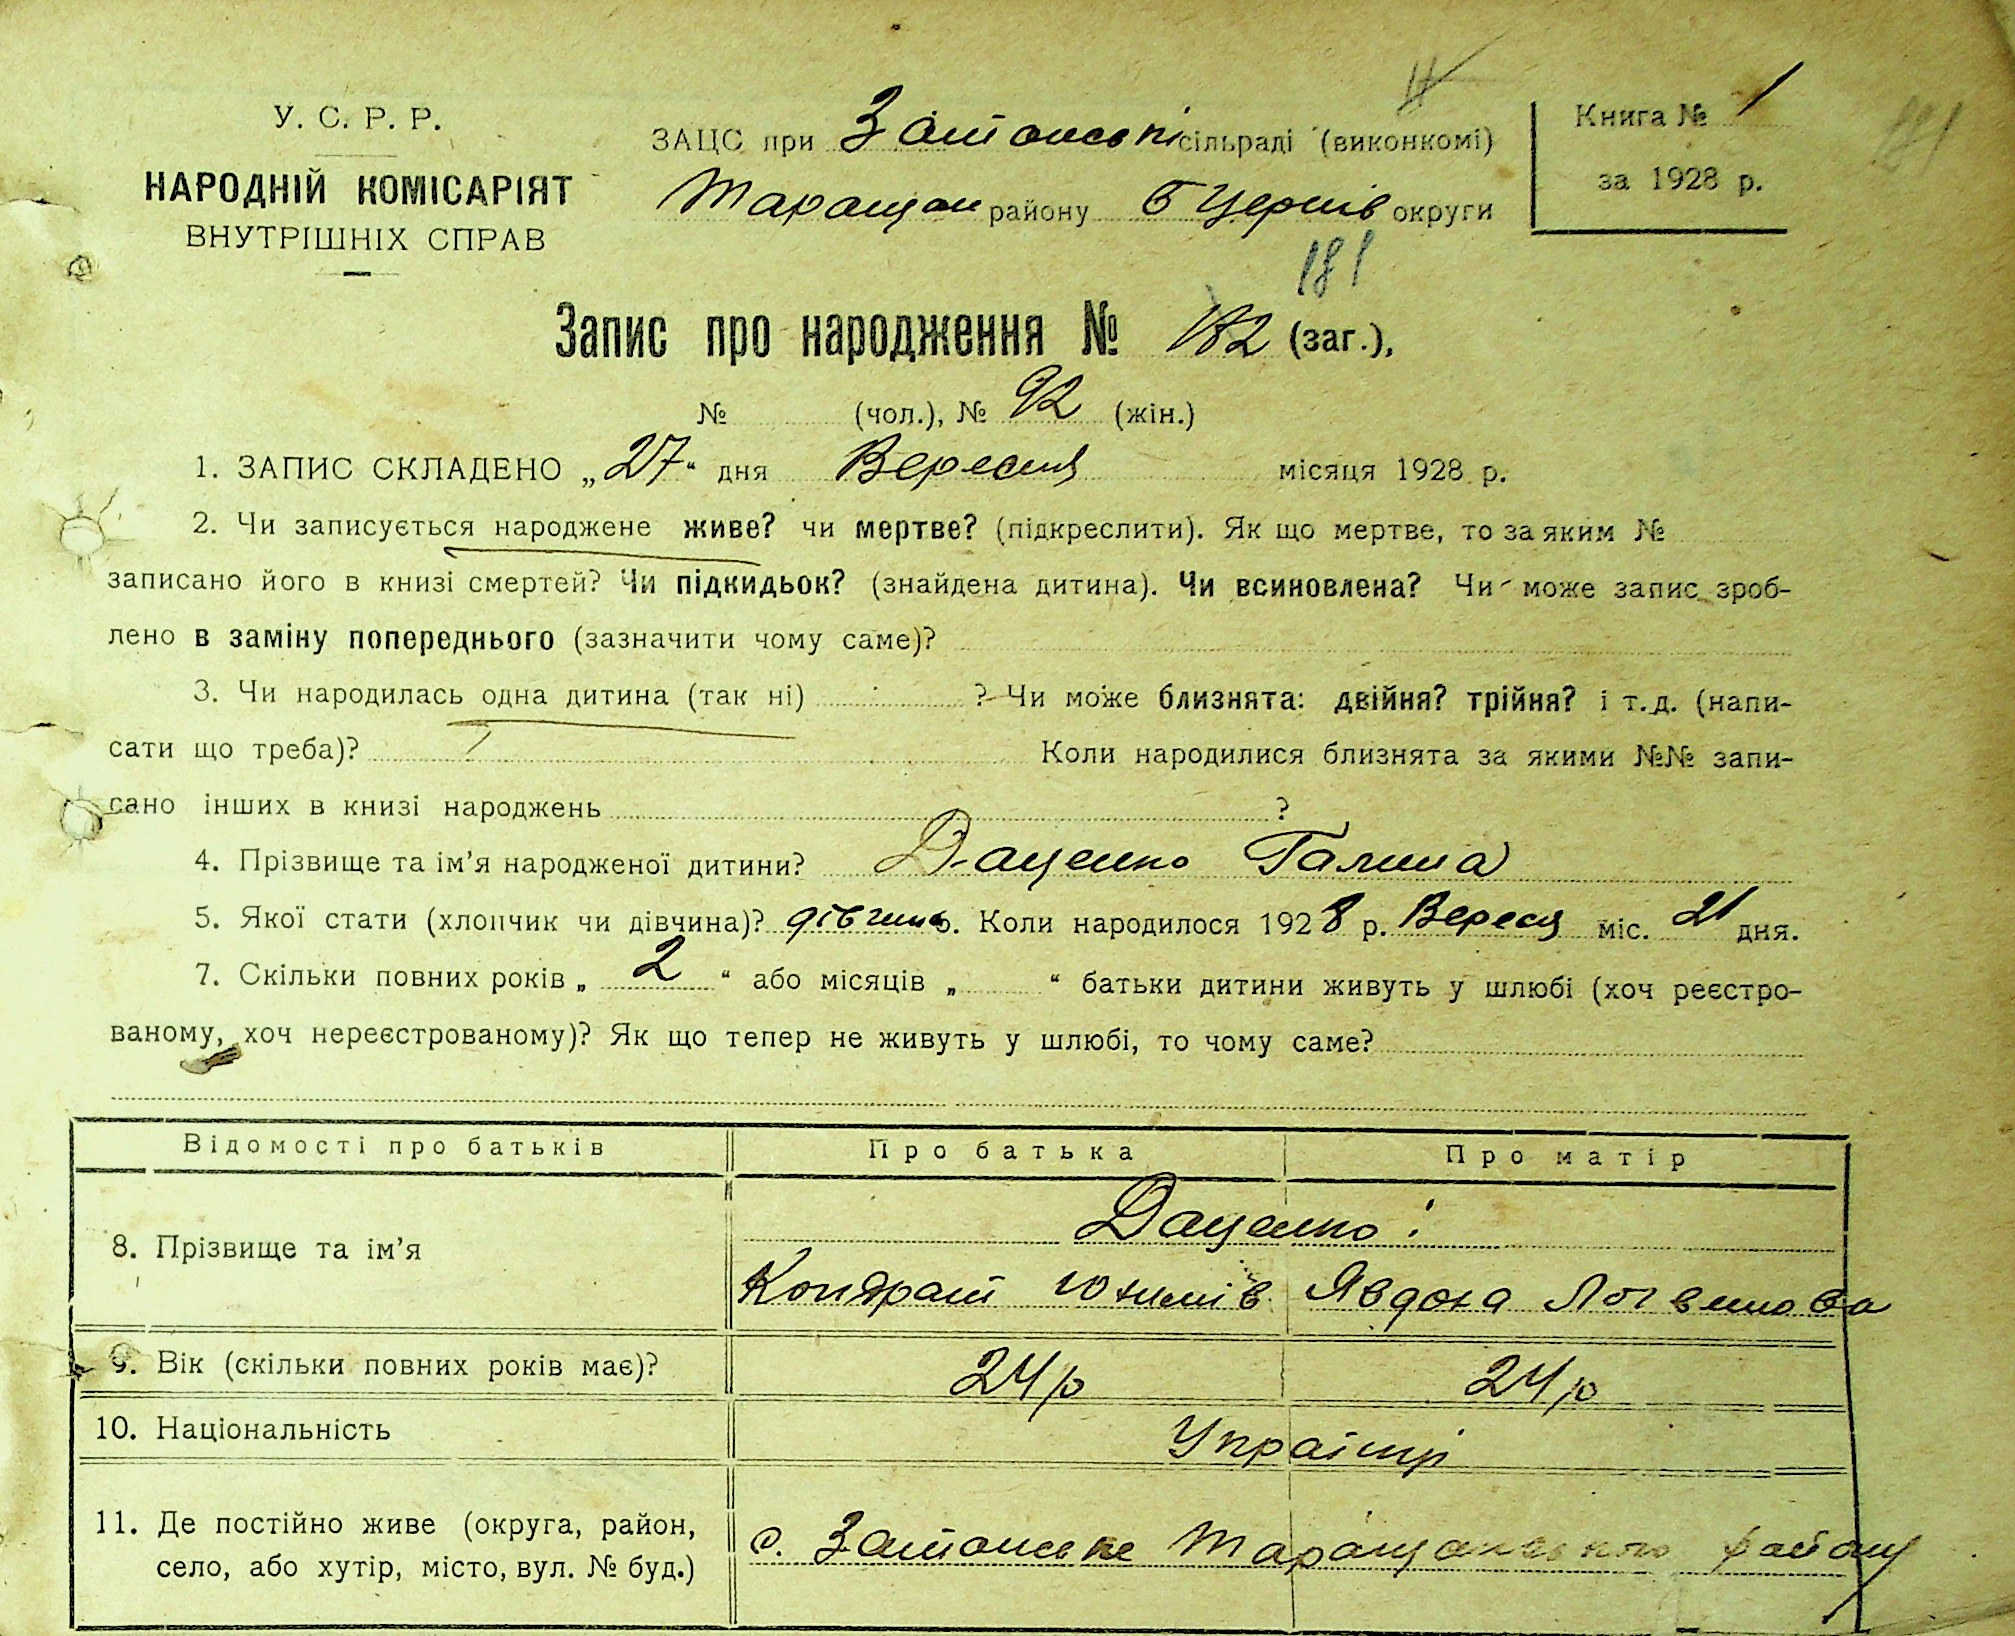 У. С. Р. Р.
НАРОДНІЙ КОМІСАРІЯТ
ВНУТРІШНІХ СПРАВ
ЗАЦС при Затонські сільраді (виконкомі)
Таращан району Б Церків округи
Книга № 1
за 1928 р.
181
181
Запис про народження № 182 (заг.),
№ (чол.), № 92 (жін.)
1. ЗАПИС СКЛАДЕНО „27“ дня Вересня місяця 1928 р.
2. Чи записується народжене живе? чи мертве? (підкреслити). Як що мертве, то за яким №
записано його в книзі смертей? Чи підкидьок? (знайдена дитина). Чи всиновлена? Чи може запис зроб-
лено в заміну попереднього (зазначити чому саме)?
3. Чи народилась одна дитина (так ні) ? Чи може близнята: двійня? трійня? і т.д. (напи-
сати що треба)? Коли народилися близнята за якими №№ запи-
сано інших в книзі народжень ?
4. Прізвище та ім’я народженої дитини? Даценко Галина
5. Якої стати (хлопчик чи дівчина)? дівчина 6. Коли народилося 1928 р. Вересня міс. 21 дня.
7. Скільки повних років „ 2 “ або місяців „ “ батьки дитини живуть у шлюбі (хоч реєстро-
ваному, хоч нереєстрованому)? Як що тепер не живуть у шлюбі, то чому саме?
Відомості про батьків Про батька Про матір
8. Прізвище та ім’я Даценко:
Кондрат Юхимів Явдоха Логвинова
9. Вік (скільки повних років має)? 24 р 24 р
10. Національність Українці
11. Де постійно живе (округа, район,
село, або хутір, місто, вул. № буд.) с. Затонське Таращанського району